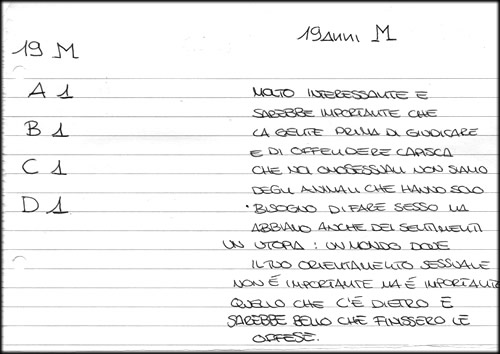 19 M
A 1
B 1
C 1
D 1
19 ANNI M
MOLTO INTERESSANTE E
SAREBBE IMPORTANTE CHE
LA GENTE PRIMA DI GIUDICARE
E DI OFFENDERE CAPISCA
CHE NOI OMOSESSUALI NON SIAMO
DEGLI ANIMALI CHE HANNO SOLO
BISOGNO DI FARE SESSO MA
ABBIAMO ANCHE DEI SENTIMENTI
UN UTOPIA: UN MONDO DOVE
IL TUO ORIENTAMENTO SESSUALE
NON É IMPORTANTE MA É IMPORTANTE
QUELLO CHE C'É DIETRO E
SAREBBE BELLO CHE FINISSERO LE
OFFESE.